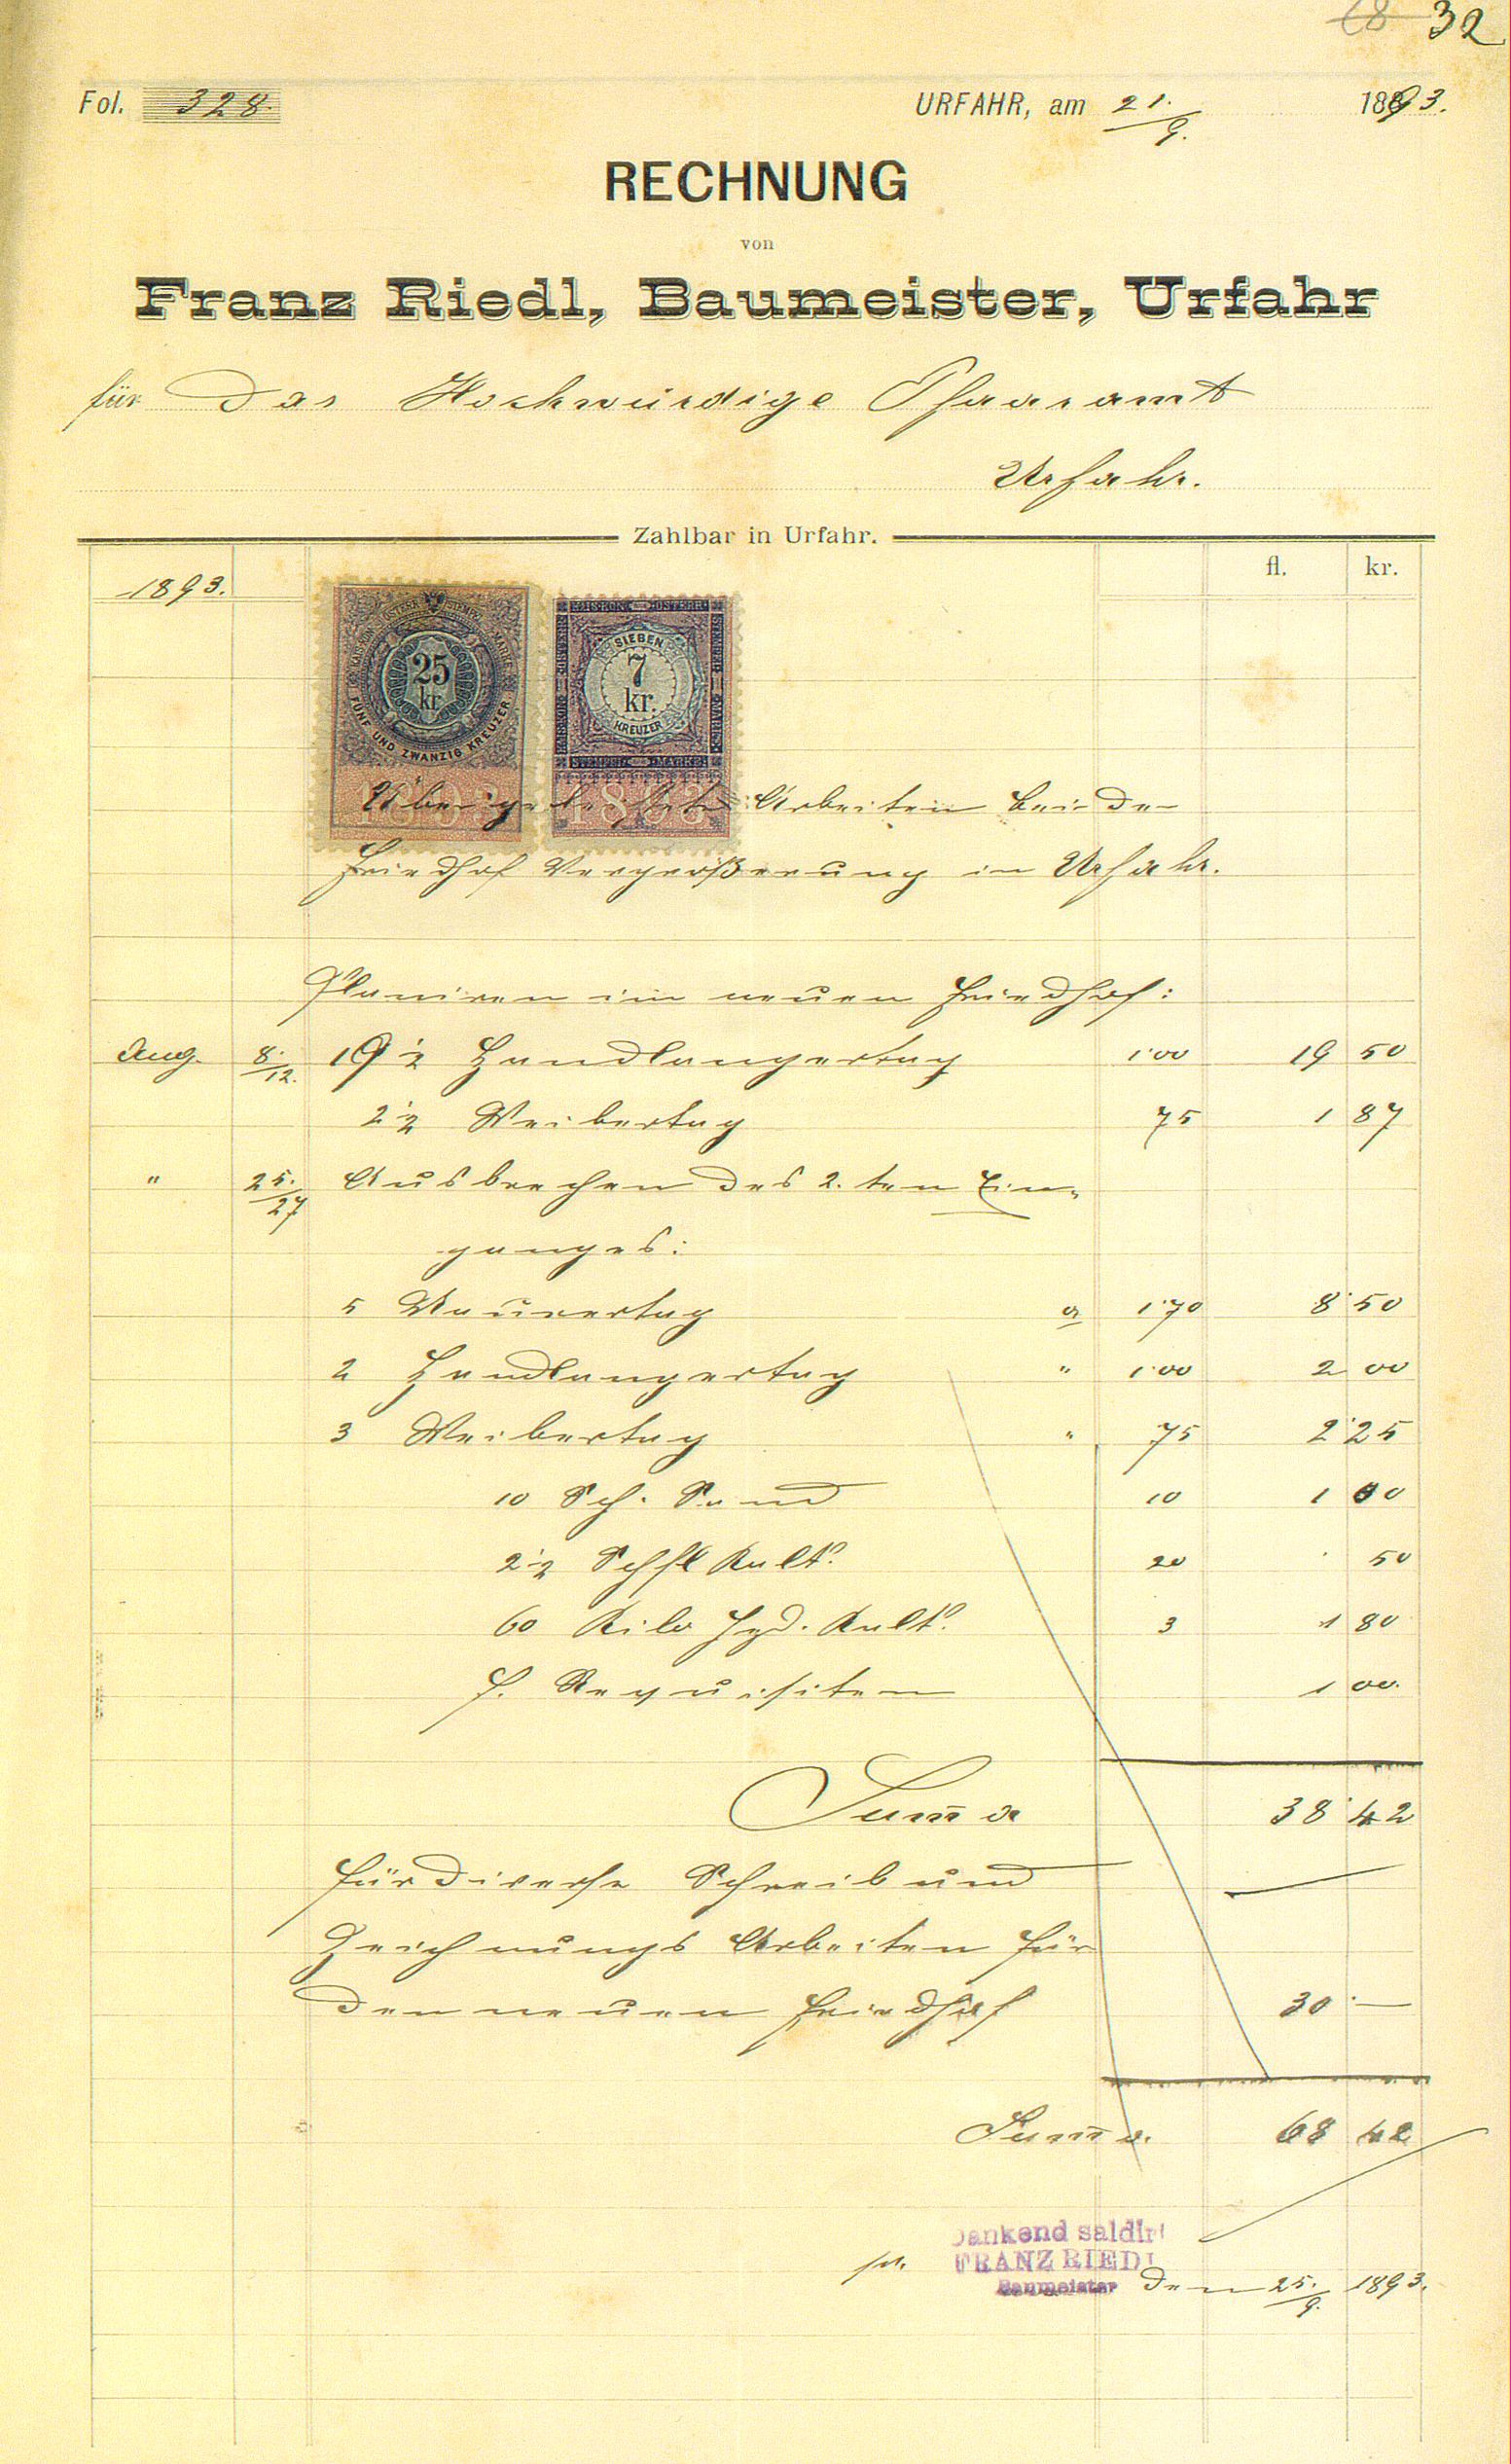 68 32
Fol. 328. URFAHR, am 21./9. 1893.
RECHNUNG
von
Franz Riedl, Baumeister, Urfahr
für Das Hochwürdige Pfaaramt
Urfahr.
Zahlbar in Urfahr.
fl. kr.
1893.
KAIS. KÖN. ÖSTERR. STEMPEL MARKE
25 kr
FÜNF UND ZWANZIG KREUZER
SIEBEN
7 kr.
KREUZER
STEMPEL MARKE
1893 1893
Über geleistete Arbeiten bei de
Friedhof Vergrößerung in Urfahr.
Planiren im neuen Friedhof:
Aug. 8./12. 19 1/2 Handlangertag 1·00 19 50
2 1/2 Weibertag 75 1 87
" 25./27 Ausbrechen des 2.ten Ein-
ganges:
5 Maurertag a 1·70 8 50
2 Handlangertag " 1·00 2 00
3 Weibertag " 75 2 25
10 Sch. Sand 10 1 00
2 1/2 Schfl Kalk 20 50
60 Kilo hyd. Kalk 3 1 80
f. Requisiten 1 00.
Summa 38 42
für diverse Schreib und
Zeichnungs Arbeiten für
den neuen Friedhof 30 —
Summa. 68 42
Dankend saldirt
FRANZ RIEDL
Baumeister
den 25./9. 1893.